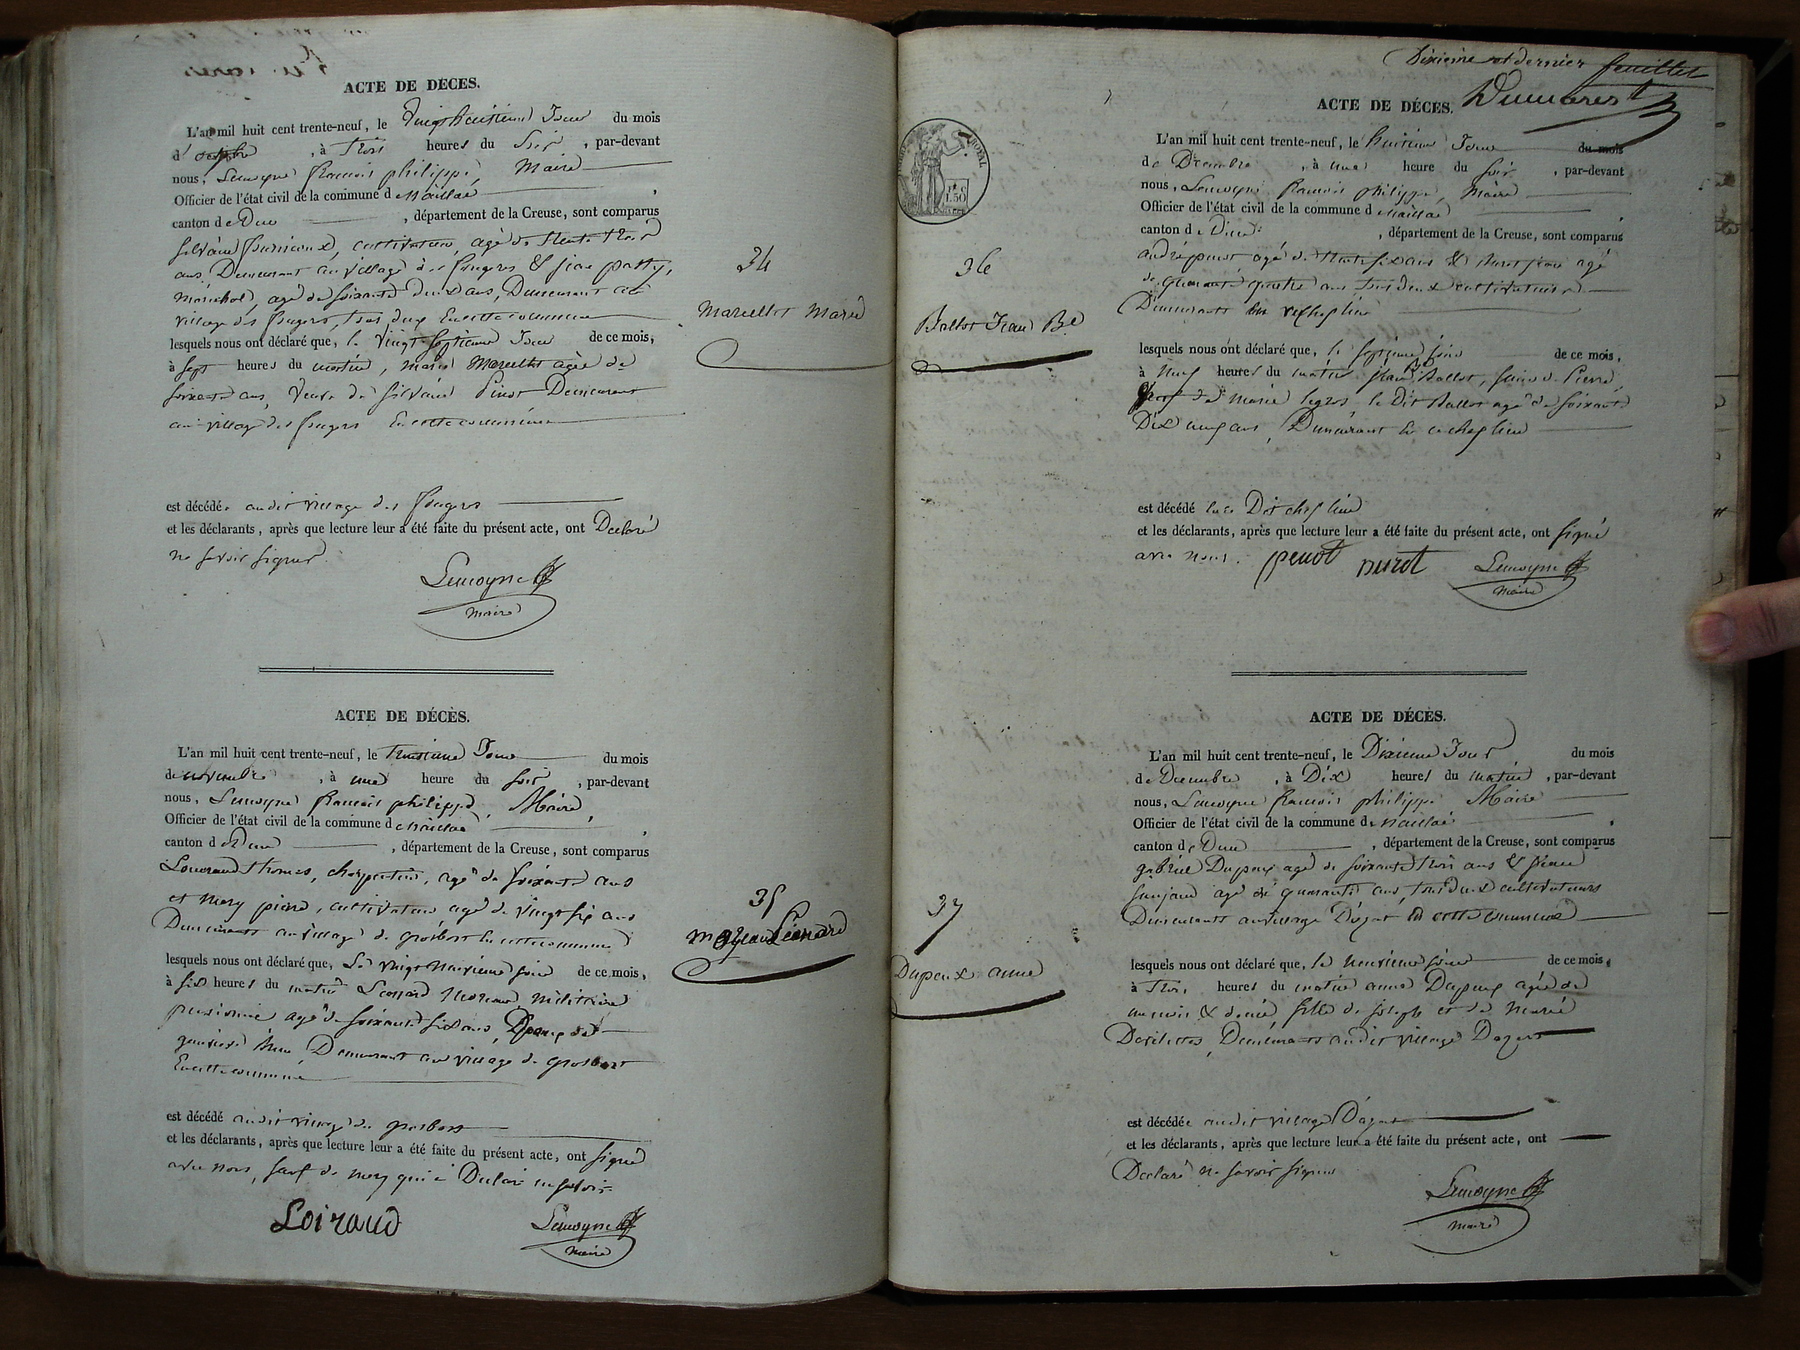 ACTE DE DÉCÈS.
L'an mil huit cent trente-neuf, le vingt huitième Jour du mois
d'octobre, à Trois heures du Soir, par-devant
nous, Lemoyne françois philippe, Maire
Officier de l'état civil de la commune de Naillac,
canton de Dun, département de la Creuse, sont comparus
Silvain, cultivateur, agé de Trente Trois
ans Demeurant au village des fougeres & jean
Maréchal, agé de soixante deux ans, Demeurant au
village des fougeres, tous deux En cette commune
lesquels nous ont déclaré que, le vingt Septieme Jour de ce mois,
à Sept heures du matin, Marie Marcellot agée de
soixante ans, veuve de Silvain Pinot Demeurant
au village des fougeres En cette commune
est décédée audit village des fougeres
et les déclarants, après que lecture leur a été faite du présent acte, ont Declaré
ne savoir signer.
Lemoyne
maire
34
Marcellot Marie
ACTE DE DÉCÈS.
L'an mil huit cent trente-neuf, le Trentieme Jour du mois
de novembre, à une heure du soir, par-devant
nous, Lemoyne françois philippe, Maire,
Officier de l'état civil de la commune de Naillac,
canton de Dun, département de la Creuse, sont comparus
Thomas, charpentier, agé de soixante ans
et mory pierre, cultivateur agé de vingt six ans
Demeurants au village de grosbost En cette commune
lesquels nous ont déclaré que, Le vingt neuvieme jour de ce mois,
à six heures du matin Leonard militaire
pensionné agé de soixante six ans, Epoux de
Demeurant au village de grosbost
En cette commune
est décédé audit village de grosbost
et les déclarants, après que lecture leur a été faite du présent acte, ont signé
avec nous, sauf de mory qui a Declaré ne savoir
Loiraud
Lemoyne
maire
35
Léonard
Dixieme et dernier feuillet
Dumarest
ROYAL
1.50
ACTE DE DÉCÈS.
L'an mil huit cent trente-neuf, le huitieme Jour du mois
de Decembre, à une heure du soir, par-devant
nous, Lemoyne francois philippe, Maire
Officier de l'état civil de la commune de Naillac,
canton de Dun, département de la Creuse, sont comparus
andré penot agé de trente six ans & nurot jean agé
de quarante quatre ans tous deux cultivateurs
Demeurants en ce chef lieu
lesquels nous ont déclaré que, le septieme jour de ce mois,
à neuf heures du matin jean Ballot, feu Pierre,
de marie legros, le Dit Ballot agé de soixante
Dix neuf ans, Demeurant En ce chef lieu
est décédé Dit chef lieu
et les déclarants, après que lecture leur a été faite du présent acte, ont signé
avec nous.
penot nurot Lemoyne
maire
36
Ballot Jean
ACTE DE DÉCÈS.
L'an mil huit cent trente-neuf, le Dixieme Jour du mois
de Decembre, à Dix heures du matin, par-devant
nous, Lemoyne francois philippe Maire
Officier de l'état civil de la commune de Naillac,
canton de Dun, département de la Creuse, sont comparus
gabriel Dupeux agé de soixante trois ans &
agé de quarante ans, tous deux cultivateurs
Demeurants au village Dazat en cette commune
lesquels nous ont déclaré que, le neuvieme jour de ce mois,
à Trois heures du matin anne Dupeux agée de
un mois & demi fille de Joseph et de Marie
Demeurants audit village Dazat
est décédée audit village Dazat
et les déclarants, après que lecture leur a été faite du présent acte, ont
Declaré ne savoir signer
Lemoyne
maire
37
Dupeux anne